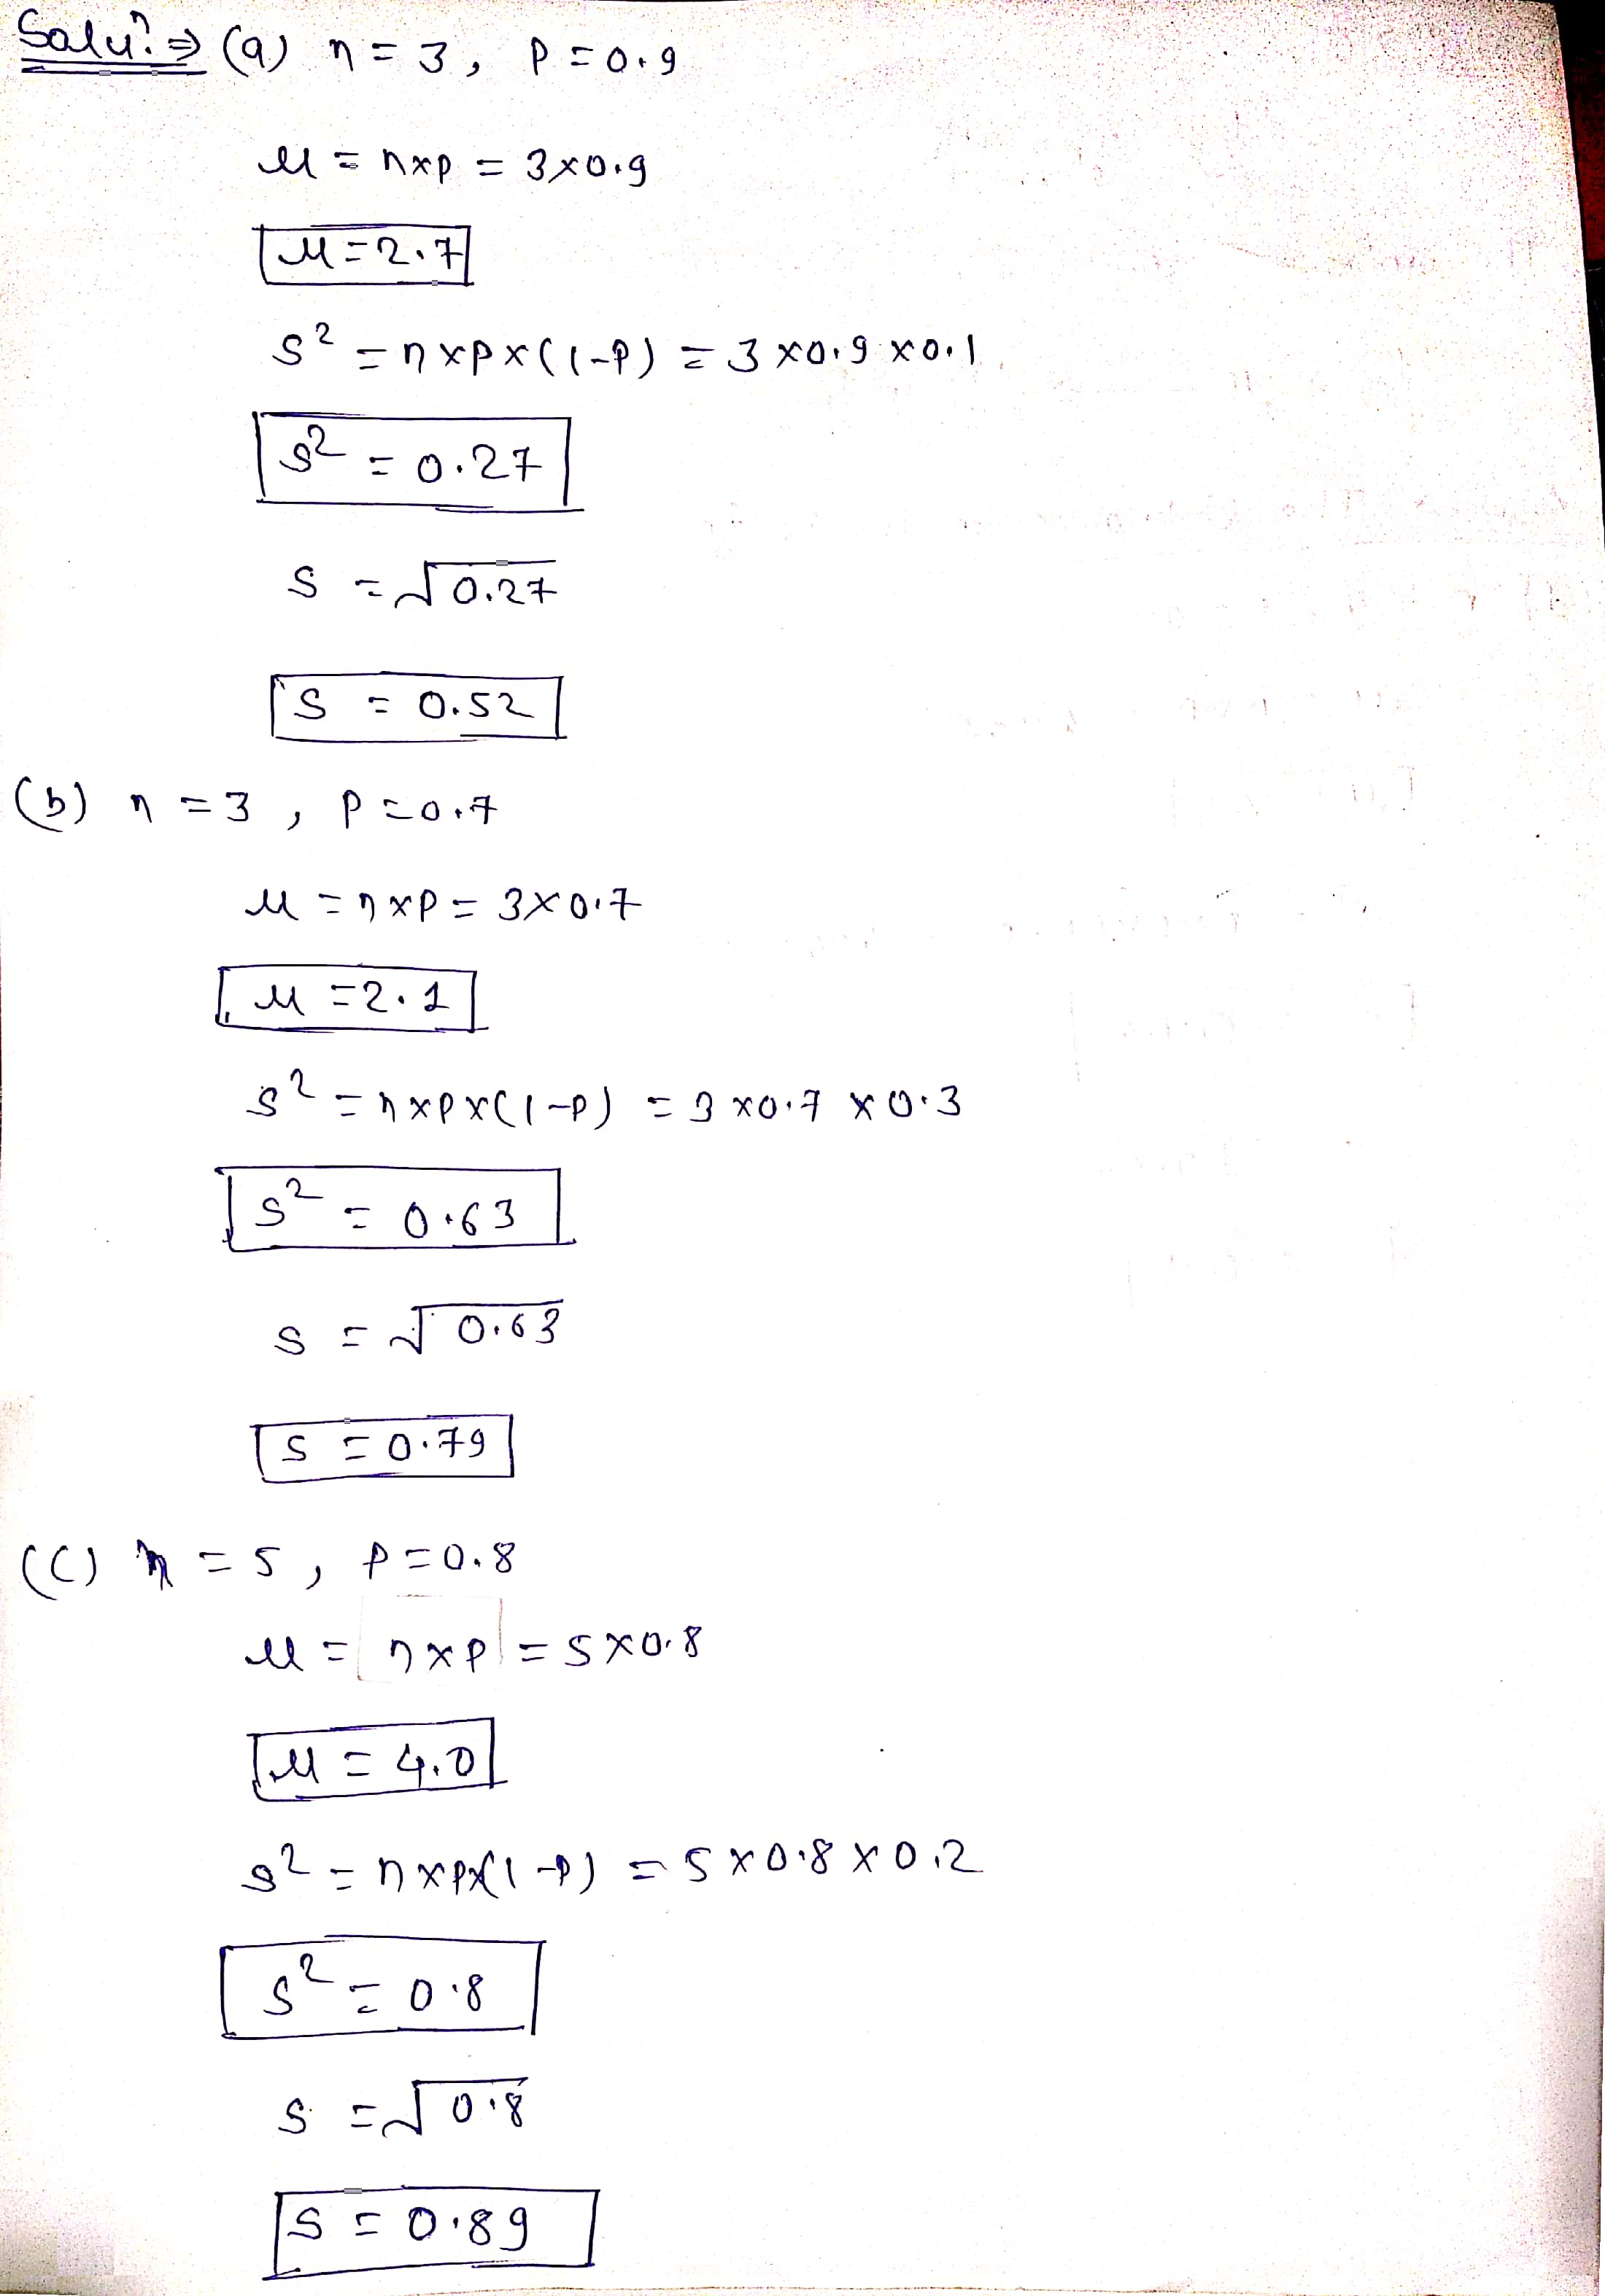 Solu? ⇒ (a) n = 3, P = 0.9
μ = n×p = 3×0.9
μ = 2.7
s² = n×p×(1-P) = 3×0.9×0.1
s² = 0.27
s = √0.27
s = 0.52
(b) n = 3, P = 0.7
μ = n×P = 3×0.7
μ = 2.1
s² = n×p×(1-P) = 3×0.7×0.3
s² = 0.63
s = √0.63
s = 0.79
(C) n = 5, P = 0.8
μ = n×p = 5×0.8
μ = 4.0
s² = n×p×(1-P) = 5×0.8×0.2
s² = 0.8
s = √0.8
s = 0.89